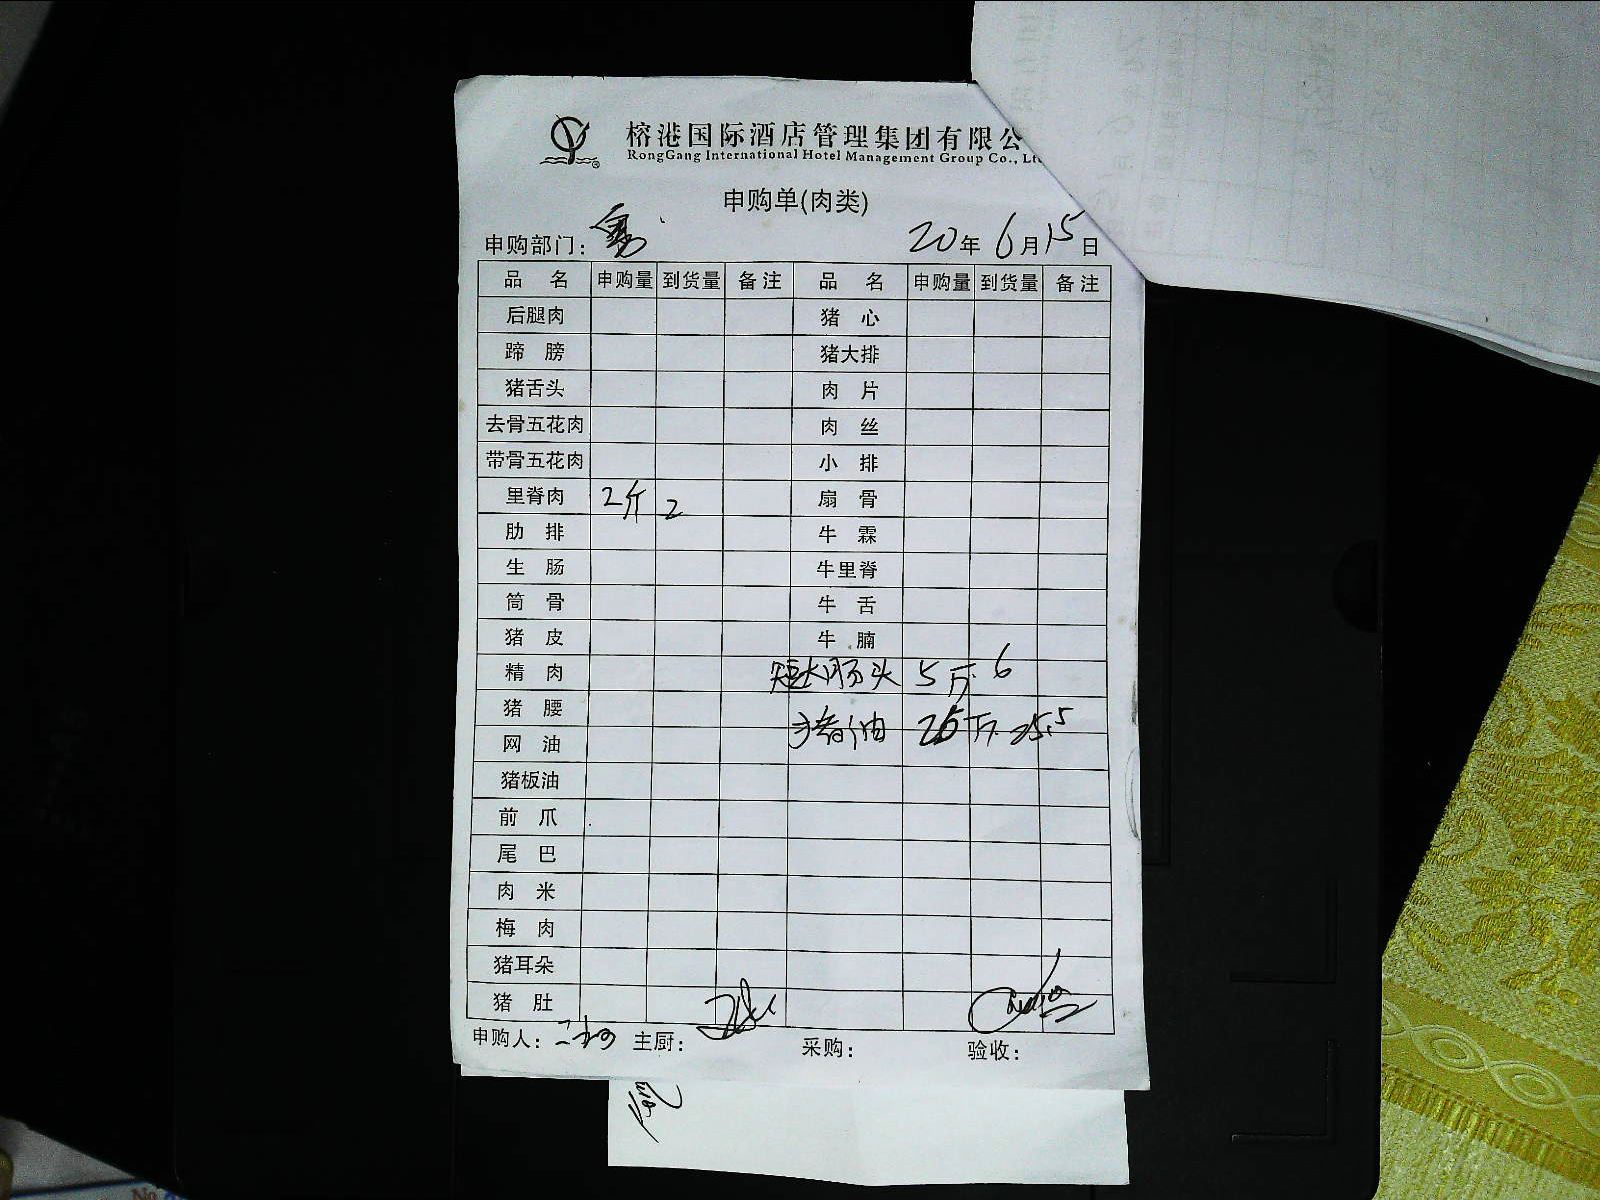 榕港国际酒店管理集团有限公
RongGang International Hotel Management Group Co., Lt
申购单(肉类)
申购部门： 20年 6月15日
品 名 申购量 到货量 备注 品 名 申购量 到货量 备注
后腿肉 猪 心
蹄 膀 猪大排
猪舌头 肉 片
去骨五花肉 肉 丝
带骨五花肉 小 排
里脊肉 2斤 2 扇 骨
肋 排 牛 霖
生 肠 牛里脊
筒 骨 牛 舌
猪 皮 牛 腩
精 肉 短大肠头 5斤 6
猪 腰 猪油 25斤 25.5
网 油
猪板油
前 爪
尾 巴
肉 米
梅 肉
猪耳朵
猪 肚
申购人： 主厨： 采购： 验收：